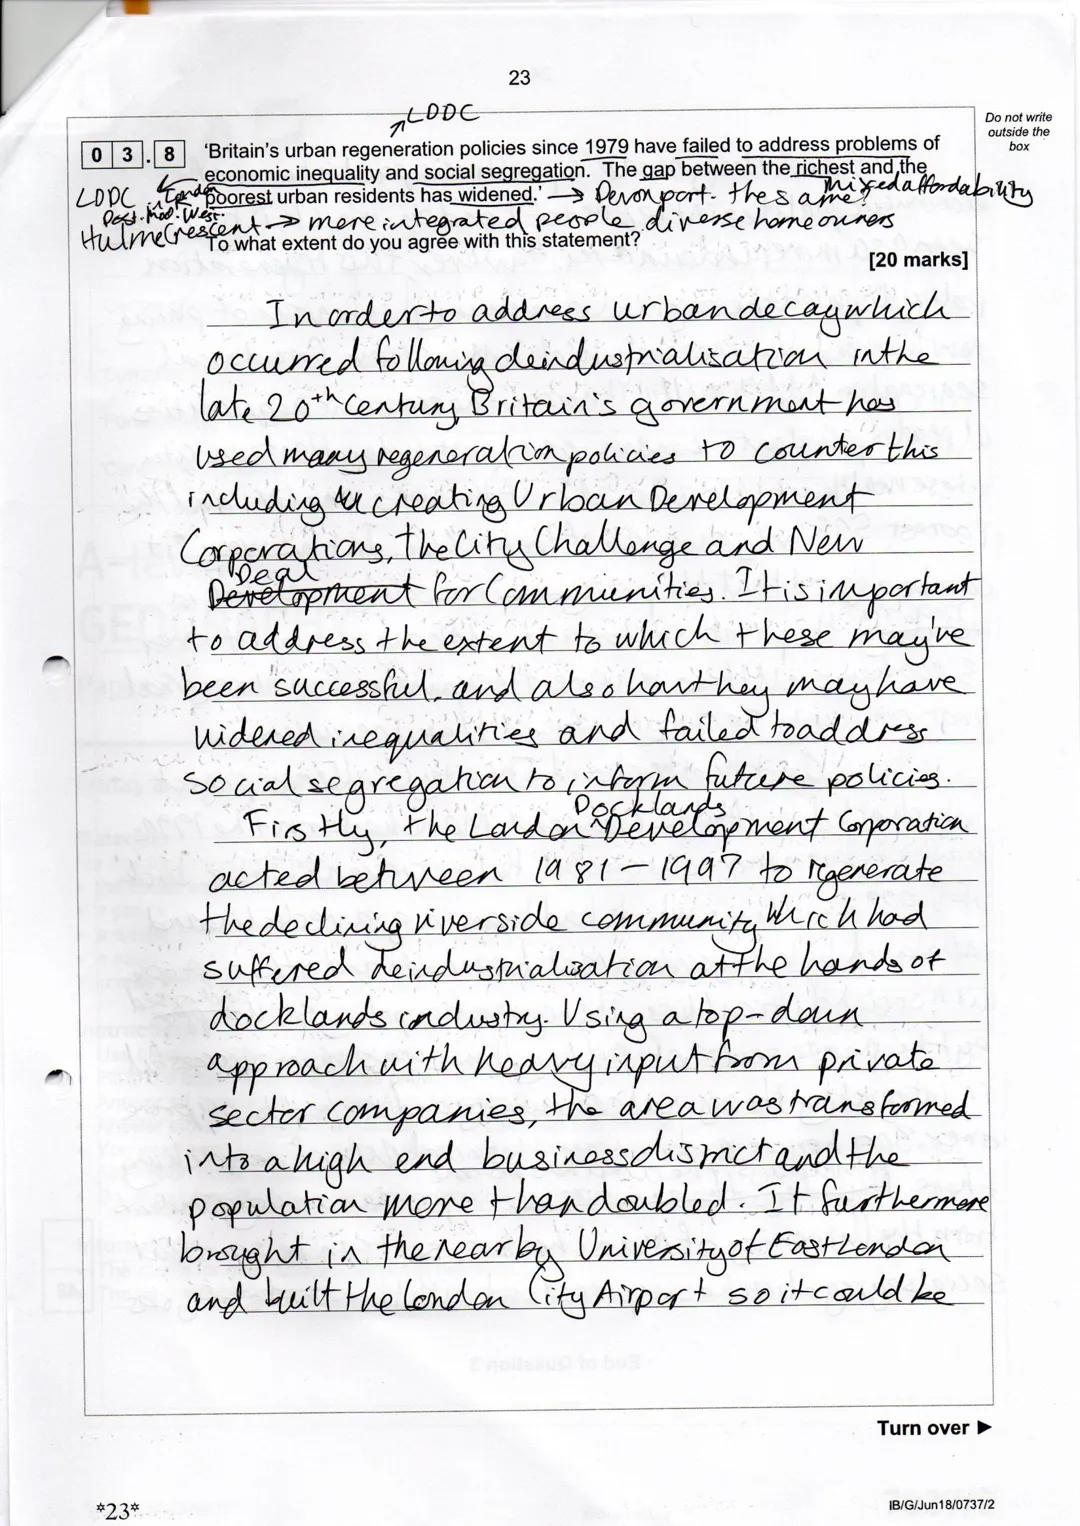 23
LDDC
Do not write
outside the
box
0 3 . 8 'Britain's urban regeneration policies since 1979 have failed to address problems of
economic inequality and social segregation. The gap between the richest and the
poorest urban residents has widened.' → Devonport - the same? mixed affordability
LDDC
Post. Mod. West.
Hulme Crescent → more integrated people diverse homeowners
To what extent do you agree with this statement?
[20 marks]
In order to address urban decay which
occurred following deindustrialisation in the
late 20th Century, Britain's government has
used many regeneration policies to counter this
including creating Urban Development
Corporations, the City Challenge and New
Deal
Development for Communities. It is important
to address the extent to which these may've
been successful, and also how they may have
widened inequalities and failed to address
social segregation to inform future policies.
Docklands
Firstly, the London Development Corporation
acted between 1981 - 1997 to regenerate
the declining riverside community which had
suffered deindustrialisation at the hands of
docklands industry. Using a top-down
approach with heavy input from private
sector companies, the area was transformed
into a high end business district and the
population more than doubled. It furthermore
brought in the nearby University of East London
and built the London City Airport so it could be
Turn over ►
*23*
IB/G/Jun18/0737/2